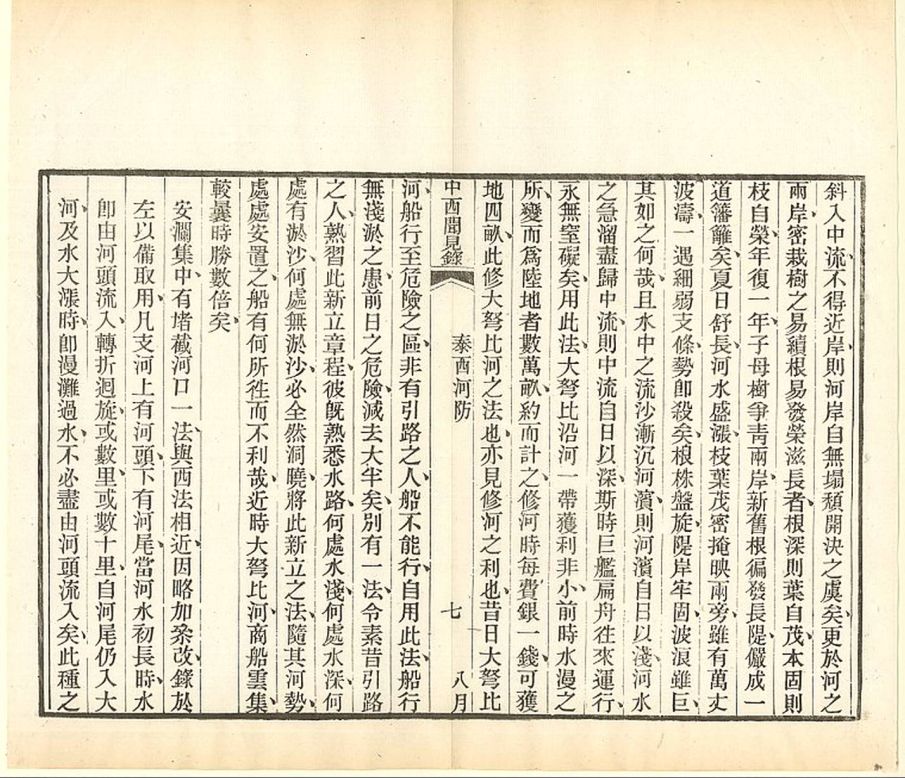 斜入中流、不得近岸、則河岸自無塌頽開決之虞矣、更於河之
兩岸、密栽樹之易續根易發榮滋長者、根深則葉自茂、本固則
枝自榮、年復一年、子母樹爭靑、兩岸新舊根徧發、長隄儼成一
道籓籬矣、夏日舒長、河水盛漲、枝葉茂密、掩映兩旁、雖有萬丈
波濤、一遇細弱支條、勢卽殺矣、根株盤旋、隄岸牢固、波浪雖巨、
其如之何哉、且水中之流沙、漸沉河濱、則河濱自日以淺、河水
之急溜、盡歸中流、則中流自日以深、斯時巨艦扁舟、往來運行、
永無窒礙矣、用此法、大弩比沿河一帶、獲利非小、前時水漫之
所、變而爲陸地者數萬畝、約而計之、修河時每費銀一錢、可獲
地四畝、此修大弩比河之法也、亦見修河之利也、昔日大弩比
中西聞見錄 泰西河防 七 八月
河、船行至危險之區、非有引路之人、船不能行、自用此法、船行
無淺淤之患、前日之危險、減去大半矣、別有一法、令素昔引路
之人、熟習此新立章程、彼旣熟悉水路、何處水淺、何處水深、何
處有淤沙、何處無淤沙、必全然洞曉、將此新立之法、隨其河勢、
處處安置之、船有何所往而不利哉、近時大弩比河、商船雲集、
較曩時勝數倍矣、
安瀾集中、有堵截河口一法、與西法相近、因略加叅改、錄於
左、以備取用、凡支河上有河頭、下有河尾、當河水初長時、水
卽由河頭流入、轉折迴旋、或數里、或數十里、自河尾仍入大
河、及水大漲時、卽漫灘過水、不必盡由河頭流入矣、此種之